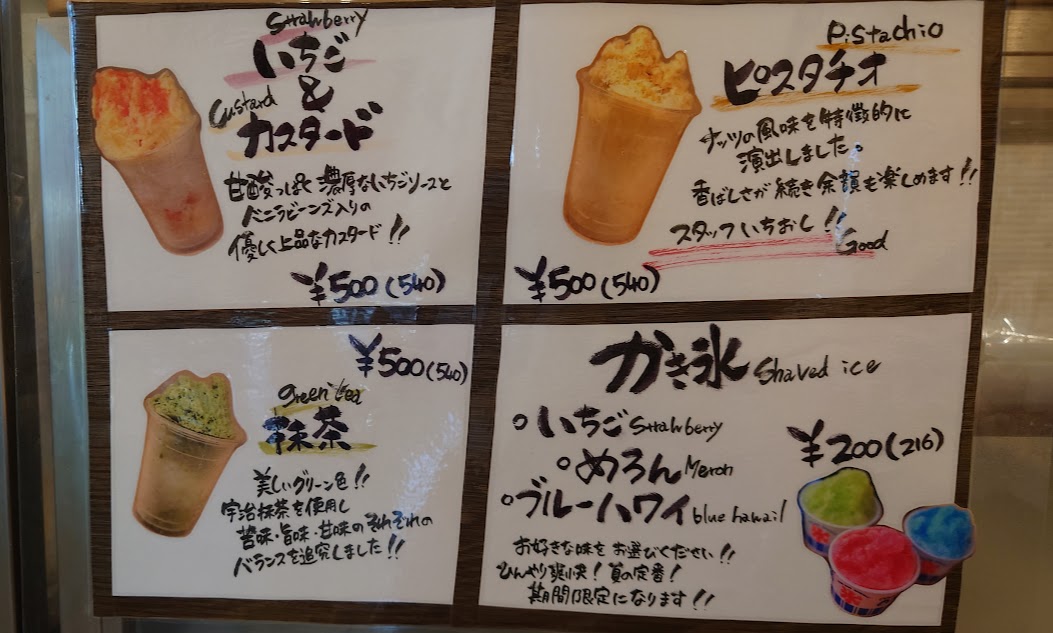 Strawberry
いちご
&
Custard
カスタード
甘酸っぱくて濃厚ないちごソースと
バニラビーンズ入りの
優しく上品なカスタード!!
¥500(540)
Pistachio
ピスタチオ
ナッツの風味を特徴的に
演出しました。
香ばしさが続き余韻も楽しめます!!
スタッフいちおし!!
Good
¥500(540)
¥500(540)
green tea
抹茶
美しいグリーン色!!
宇治抹茶を使用し
苦味・旨味・甘味のそれぞれの
バランスを追究しました!!
かき氷 Shaved ice
いちご Strawberry
めろん Meron
ブルーハワイ blue hawail
¥200(216)
お好きな味をお選びください!!
ひんやり爽快!夏の定番!
期間限定になります!!